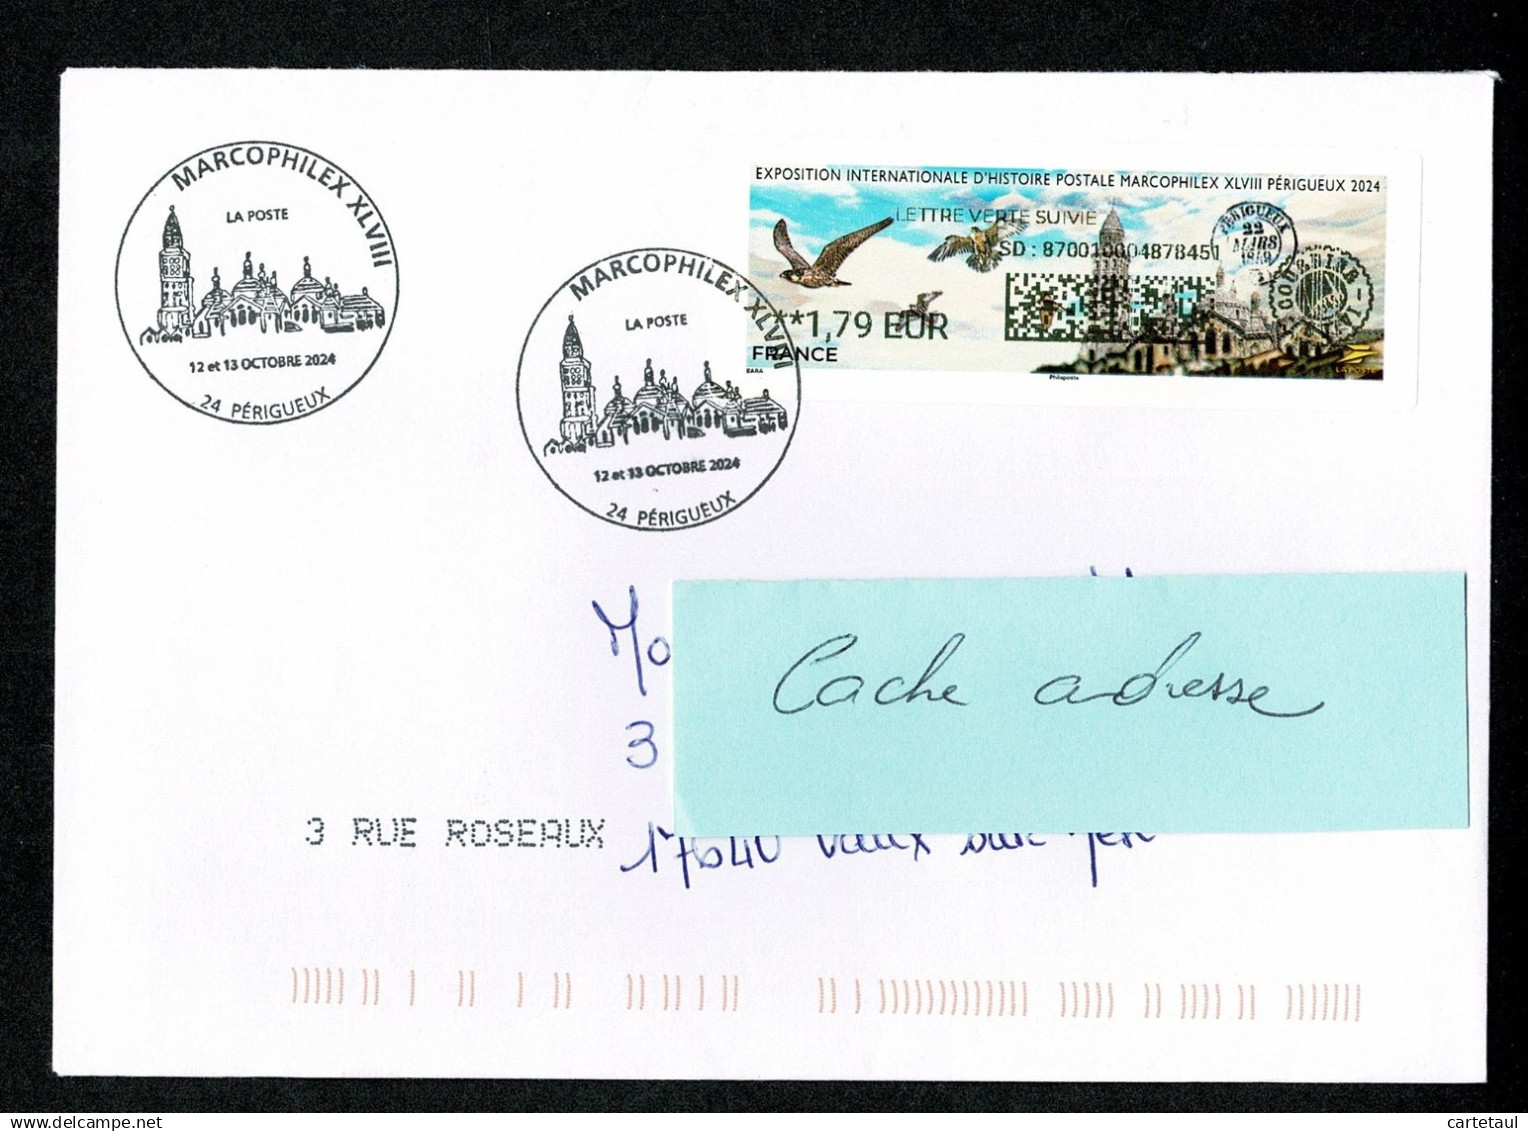 MARCOPHILEX XLVIII
LA POSTE
12 et 13 OCTOBRE 2024
24 PÉRIGUEUX
MARCOPHILEX XLVIII
LA POSTE
12 et 13 OCTOBRE 2024
24 PÉRIGUEUX
EXPOSITION INTERNATIONALE D'HISTOIRE POSTALE MARCOPHILEX XLVIII PÉRIGUEUX 2024
LETTRE VERTE SUIVIE
SD : 870010004878451
PÉRIGUEUX
22
MARS
**1,79 EUR
FRANCE
BARA
Philaposte
LA POSTE
Mo
Cache adresse
3
3 RUE ROSEAUX
17640 Vaux sur Mer
cartetaul